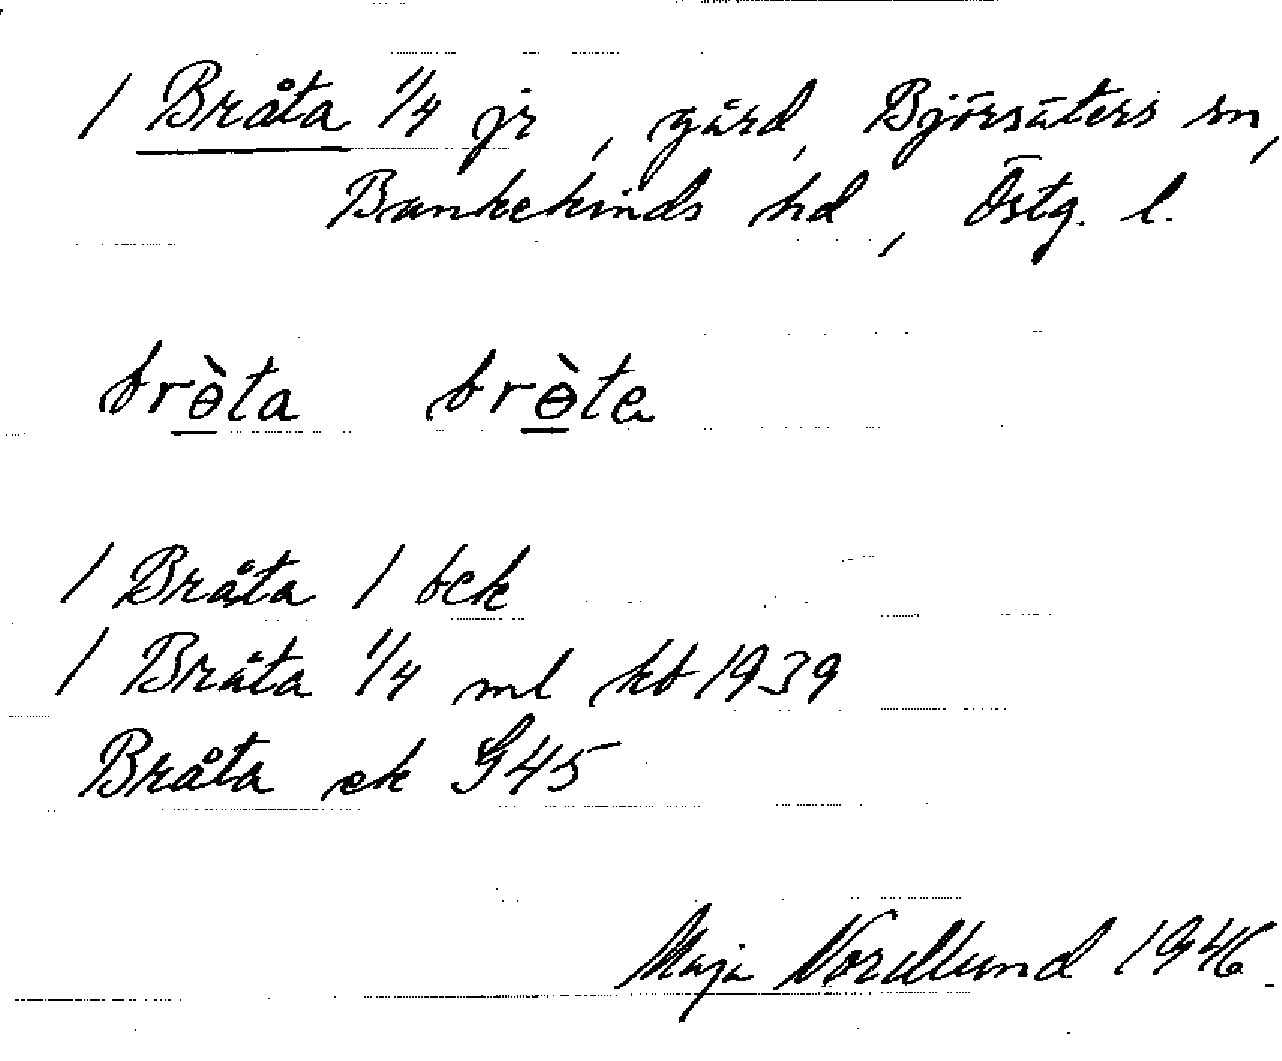 1 Bråta 1/4 jr, gård, Björsäters sn,
Bankekinds hd, Östg. l.
brɵ̀ta brɵ̀te
1 Bråta 1 bek
1 Bråta 1/4 ml kb 1939
Bråta ek G45
Maja Nordlund 1946